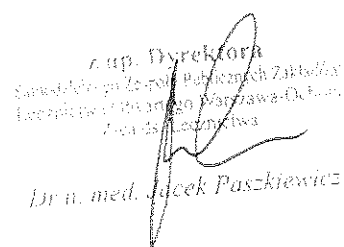 z up. Dyrektora
Samodzielnego Zespołu Publicznych Zakładów
Lecznictwa Otwartego Warszawa-Ochota
Z-ca ds. Lecznictwa
Dr n. med. Jacek Paszkiewicz